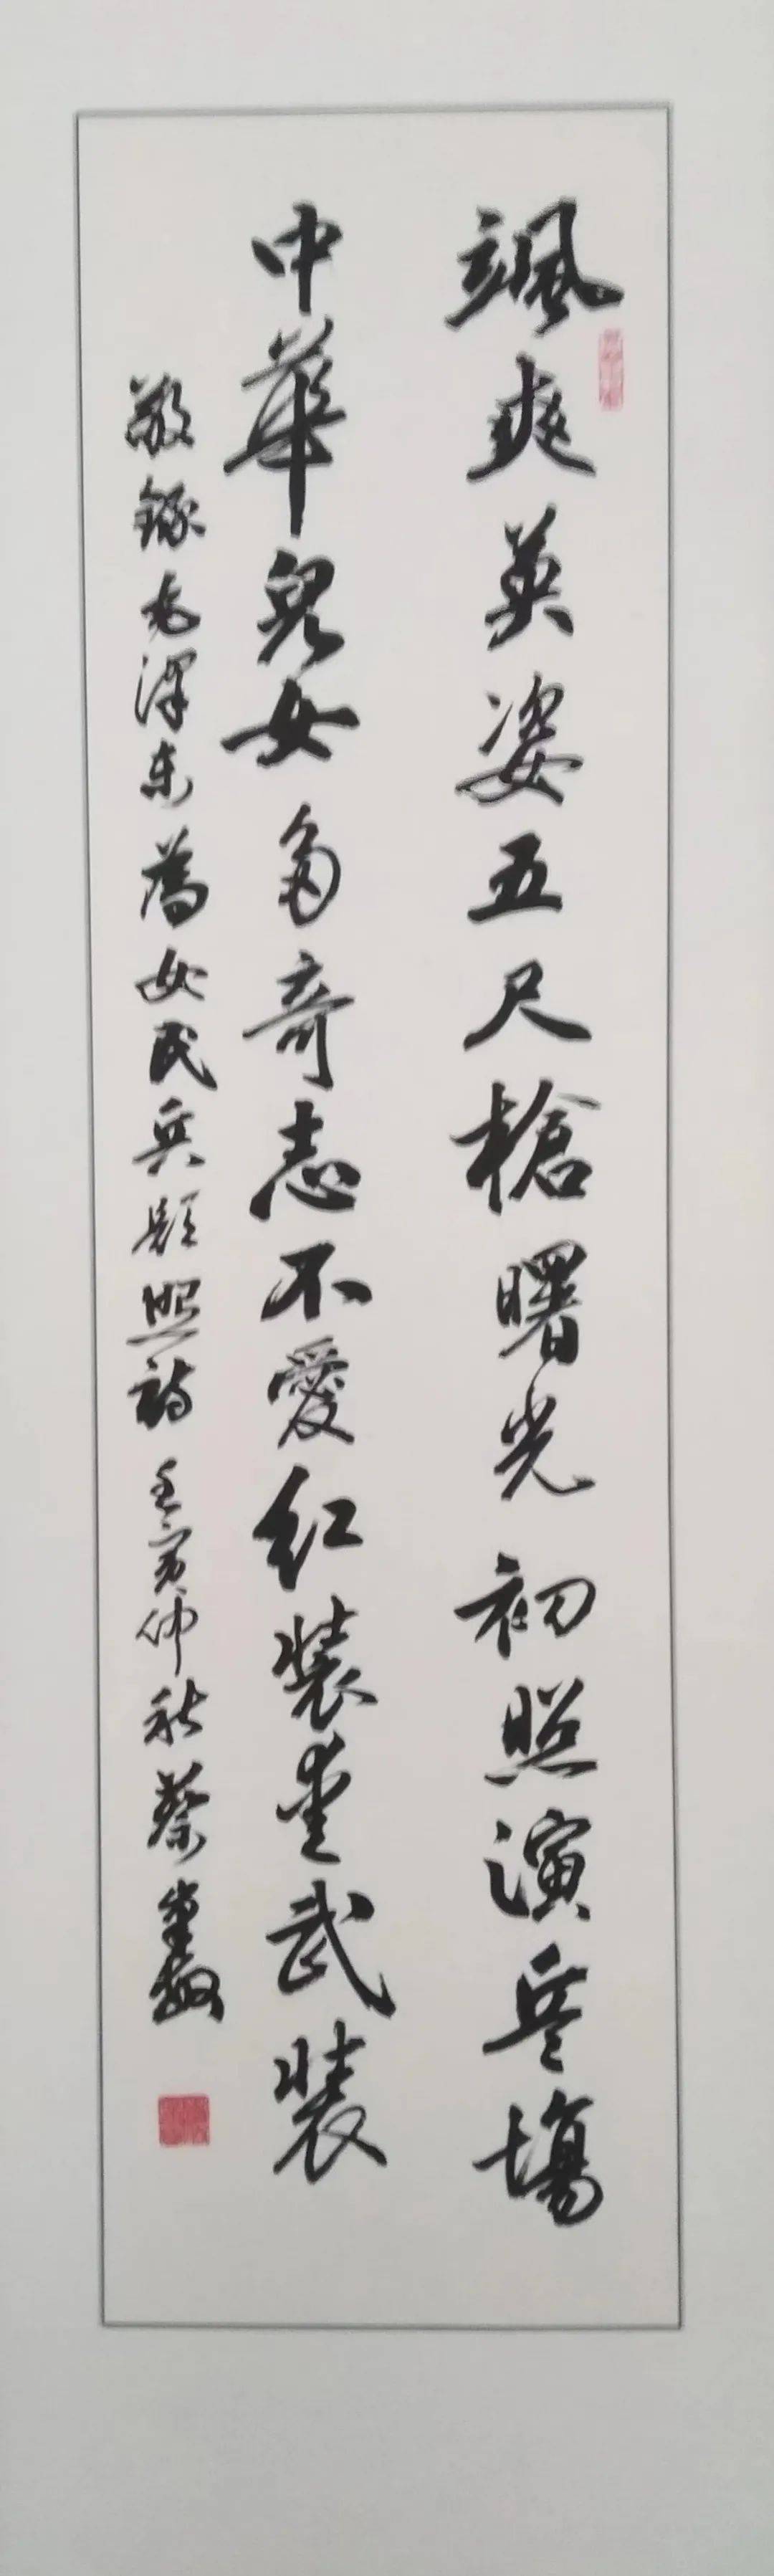 颯爽英姿五尺槍曙光初照演兵場
中華兒女多奇志不愛紅裝愛武裝
敬錄毛澤東為女民兵題照詩壬寅仲秋蔡